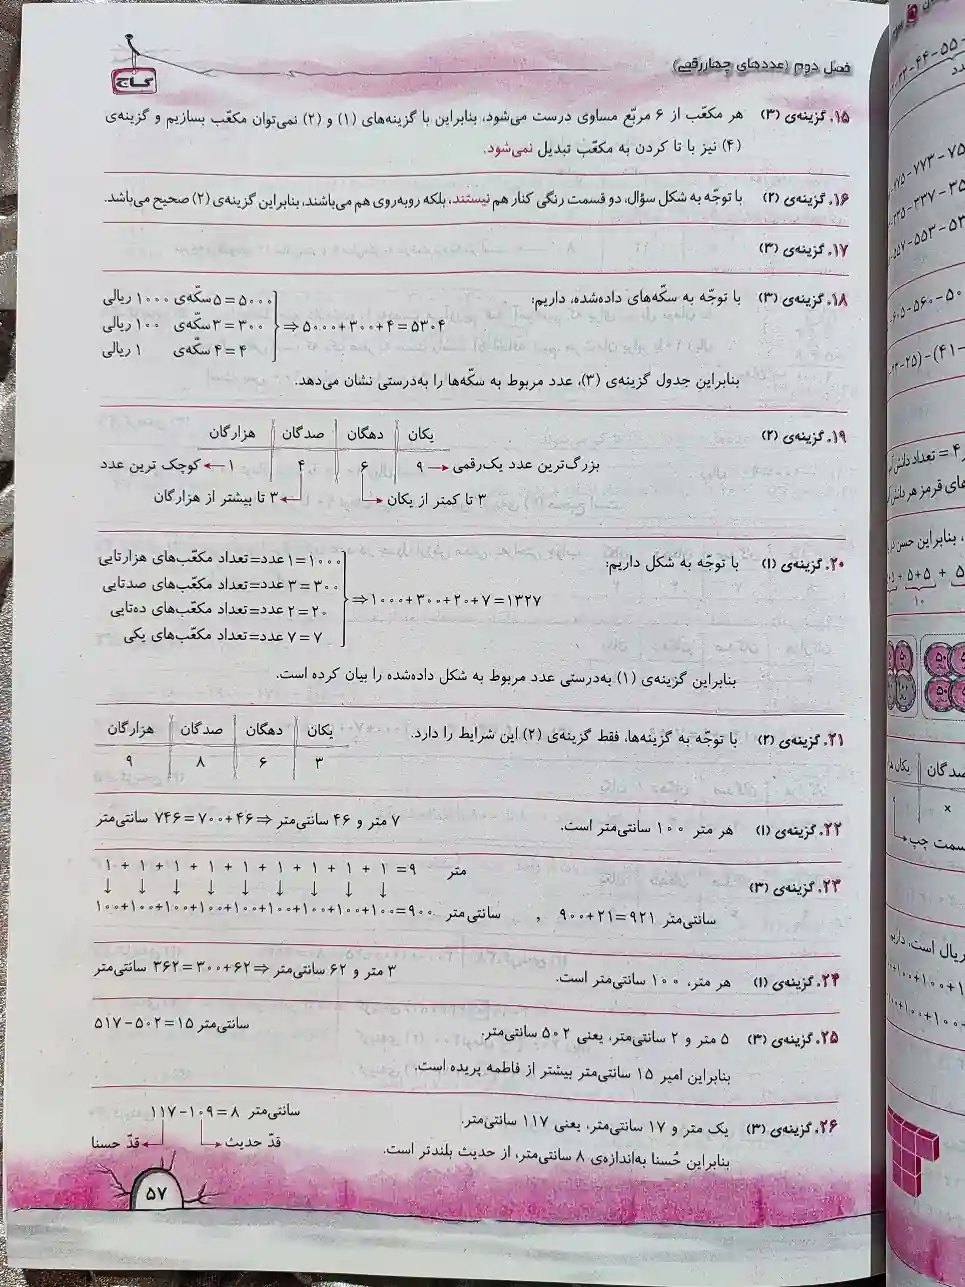 فصل دوم (عددهای چهاررقمی)
گاج
۱۵. گزینه‌ی (۳) هر مکعّب از ۶ مربّع مساوی درست می‌شود، بنابراین با گزینه‌های (۱) و (۲) نمی‌توان مکعّب بسازیم و گزینه‌ی
(۴) نیز با تا کردن به مکعّب تبدیل نمی‌شود.
۱۶. گزینه‌ی (۲) با توجّه به شکل سؤال، دو قسمت رنگی کنار هم نیستند، بلکه روبه‌روی هم می‌باشند، بنابراین گزینه‌ی (۲) صحیح می‌باشد.
۱۷. گزینه‌ی (۳)
۱۸. گزینه‌ی (۳) با توجّه به سکّه‌های داده‌شده، داریم:
۵ سکّه‌ی ۱۰۰۰ ریالی = ۵۰۰۰
۳ سکّه‌ی ۱۰۰ ریالی = ۳۰۰
۴ سکّه‌ی ۱ ریالی = ۴
⇒ ۵۰۰۰+۳۰۰+۴=۵۳۰۴
بنابراین جدول گزینه‌ی (۳)، عدد مربوط به سکّه‌ها را به‌درستی نشان می‌دهد.
۱۹. گزینه‌ی (۲)
یکان دهگان صدگان هزارگان
بزرگ‌ترین عدد یک‌رقمی ← ۹ ۶ ۴ ۱ → کوچک ترین عدد
۳ تا کمتر از یکان ۳ تا بیشتر از هزارگان
۲۰. گزینه‌ی (۱) با توجّه به شکل داریم:
تعداد مکعّب‌های هزارتایی = ۱ عدد = ۱۰۰۰
تعداد مکعّب‌های صدتایی = ۳ عدد = ۳۰۰
تعداد مکعّب‌های ده‌تایی = ۲ عدد = ۲۰
تعداد مکعّب‌های یکی = ۷ عدد = ۷
⇒ ۱۰۰۰+۳۰۰+۲۰+۷=۱۳۲۷
بنابراین گزینه‌ی (۱) به‌درستی عدد مربوط به شکل داده‌شده را بیان کرده است.
۲۱. گزینه‌ی (۲) با توجّه به گزینه‌ها، فقط گزینه‌ی (۲) این شرایط را دارد.
یکان دهگان صدگان هزارگان
۳ ۶ ۸ ۹
۲۲. گزینه‌ی (۱) هر متر ۱۰۰ سانتی‌متر است.
۷ متر و ۴۶ سانتی‌متر ⇒ ۷۰۰+۴۶=۷۴۶ سانتی‌متر
۲۳. گزینه‌ی (۳)
۱ + ۱ + ۱ + ۱ + ۱ + ۱ + ۱ + ۱ + ۱ = ۹ متر
↓ ↓ ↓ ↓ ↓ ↓ ↓ ↓ ↓
۱۰۰+۱۰۰+۱۰۰+۱۰۰+۱۰۰+۱۰۰+۱۰۰+۱۰۰+۱۰۰=۹۰۰ سانتی‌متر , ۹۰۰+۲۱=۹۲۱ سانتی‌متر
۲۴. گزینه‌ی (۱) هر متر، ۱۰۰ سانتی‌متر است.
۳ متر و ۶۲ سانتی‌متر ⇒ ۳۰۰+۶۲=۳۶۲ سانتی‌متر
۲۵. گزینه‌ی (۳) ۵ متر و ۲ سانتی‌متر، یعنی ۵۰۲ سانتی‌متر.
۵۱۷-۵۰۲=۱۵ سانتی‌متر
بنابراین امیر ۱۵ سانتی‌متر بیشتر از فاطمه پریده است.
۲۶. گزینه‌ی (۳) یک متر و ۱۷ سانتی‌متر، یعنی ۱۱۷ سانتی‌متر.
۱۱۷-۱۰۹=۸ سانتی‌متر
قدّ حسنا قدّ حدیث
بنابراین حُسنا به‌اندازه‌ی ۸ سانتی‌متر، از حدیث بلندتر است.
۵۷